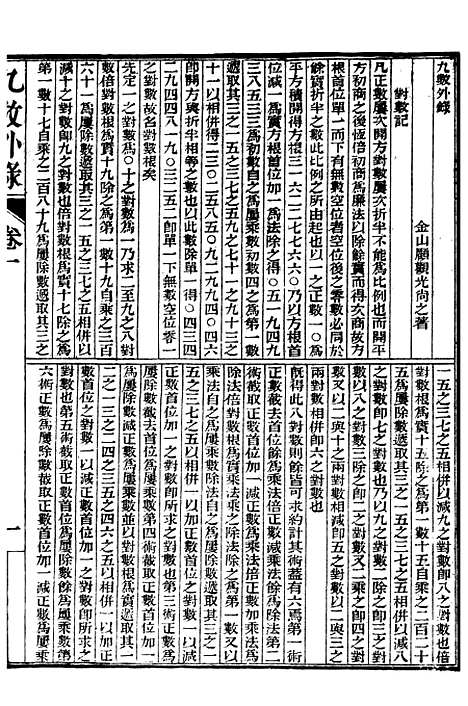 九數外錄
金山顧觀光尚之著
對數記
凡正數屢次開方對數屢次折半不能爲比例也而開
方初商之後恆倍初商爲廉法以除餘實而得次商故方
根首位單一而下有無數空位者空位後之零數必同於
餘實折半之數此比例之所由起也以之正數一〇爲
平方積開得方根
位減一爲對數根首位加一爲法除之得〇五一九四九
三八五三三爲初數自之爲屢乘數初數四之爲第一數
遞取其三之一五之三七之五九之七十一之九十三之
十一以相併得二三〇二五八五〇九二九九四〇四〇
即開方與折半相等之數也以此數除單一得〇四三四
二九四四八一九〇三二五二即單一下無數空位零一
之對數故名對數根矣
先定一之對數爲〇十之對數爲一乃求二至九之八對
數倍對數根爲實十九除之爲第一數十九自乘之三百
六十一爲屢除數遞取其三之一五之三七之五相併以
減十之對數即九之對數也倍對數根爲實十七除之爲
第一數十七自乘之二百八十九爲屢除數遞取其三之
一五之三七之五相併以減九之對數即八之對數也倍
對數根爲實十五除之爲第一數十五自乘之二百二十
五爲屢除數遞取其三之一五之三七之五相併以減八
之對數即七之對數也九之對數半之即三之對數八之
對數三除之即二之對數又二乘之即四之對
數又以二之對數與十之對數相減即五之對數以二與三之
兩對數相併即六之對數也
旣得此八對數則餘皆可求約計其術蓋有六焉第一術
正數截去首位餘減正數爲乘法倍正數加乘法爲
除法倍對數根爲實乘法乘之法除之爲第一數又以
乘法自之爲屢乘數除法自之爲屢除數遞取其三之一
五之三七之五以相併以加首位之對數即所求之對數第二
術截取正數首位加一減正數爲乘法倍正數加乘法爲
正數首位加一之對數即所求之對數也第三術正數爲
屢除數截去首位爲屢乘數第四術截取正數首位加一
爲屢除數減正數爲屢乘數並以對數根爲實遞取其二
之一三之二四之三五之四六之五以相併一以加正
數首位之對數一以減正數首位加一之對數即所求之
對數也第五術截取正數首位爲屢除數餘爲屢乘數第
六術正數爲屢除數截取正數首位加一減正數爲屢乘
九數外錄
卷一
一